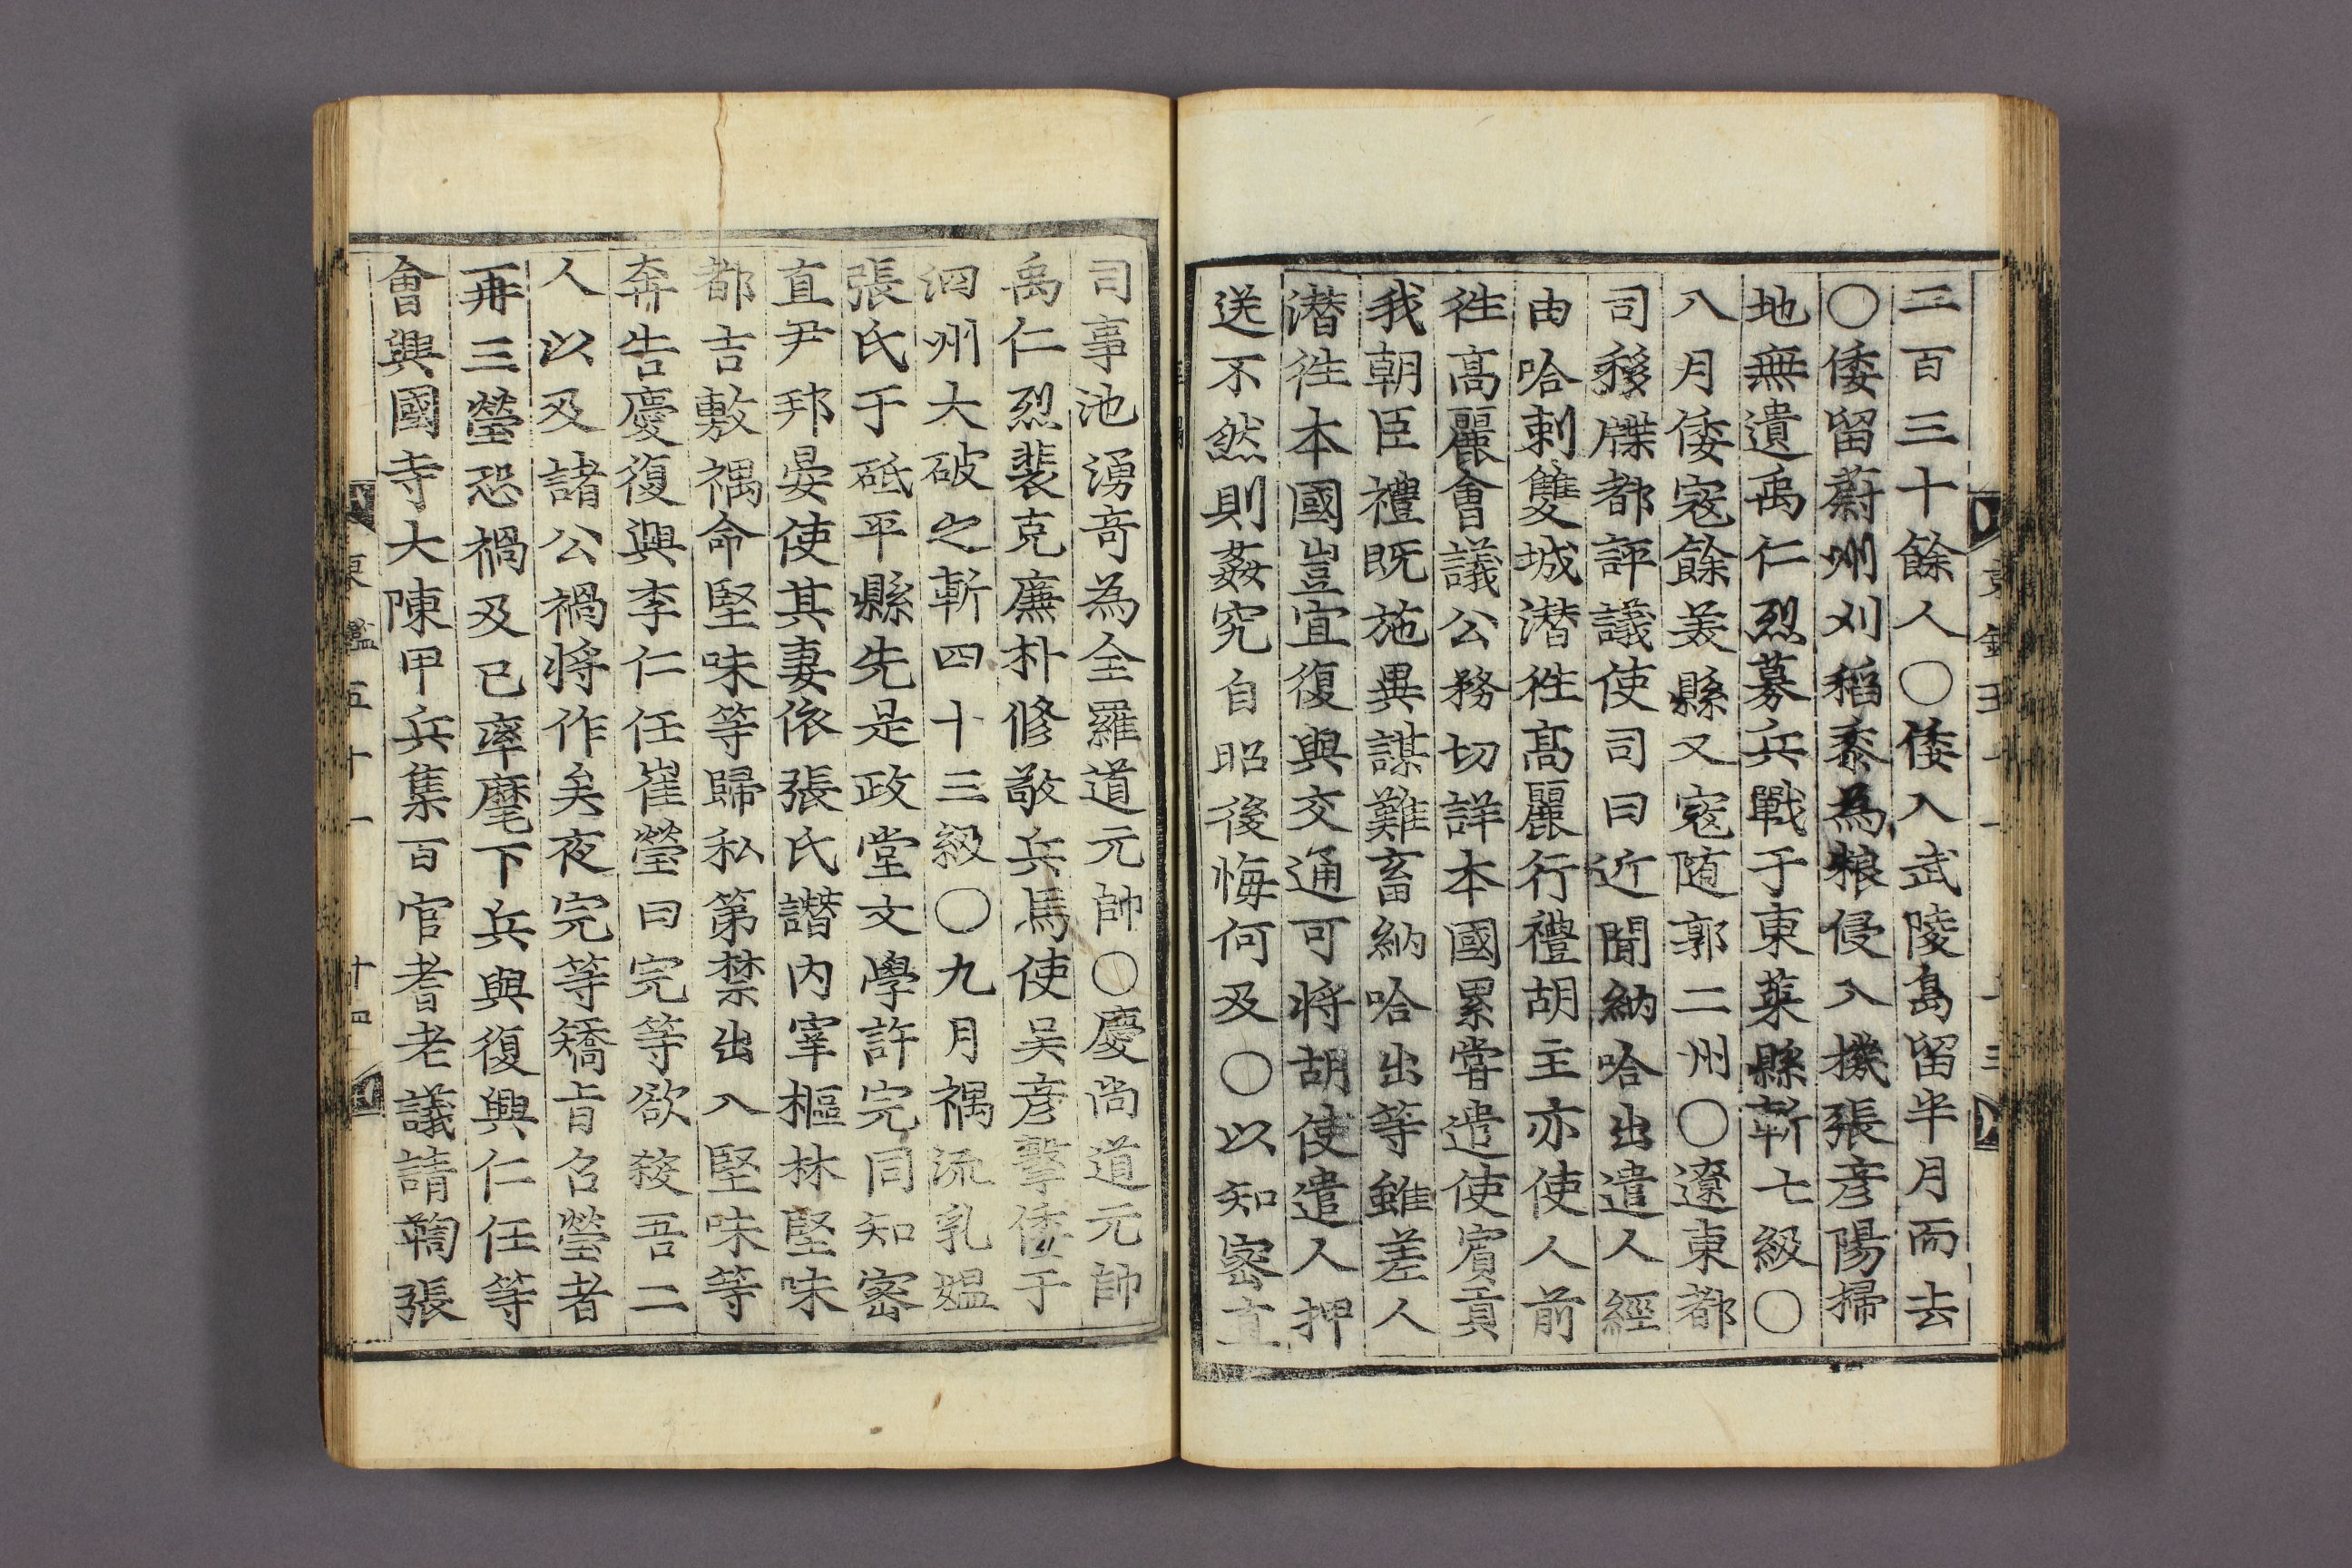 二百三十餘人○倭入武陵島留半月而去
○倭留蔚州刈稻黍為粮侵入機張彦陽掃
地無遺禹仁烈募兵戰于東萊縣斬七級○
八月倭寇餘美縣又寇隨郭二州○遼東都
司移牒都評議使司曰近聞納哈出遣人經
由哈剌雙城潜徃髙麗行禮胡主亦使人前
徃髙麗會議公務切詳本國累甞遣使賓貢
我朝臣禮既施異謀難畜納哈出等雖差人
潜徃本國豈宜復與交通可將胡使遣人押
送不然則姦宄自昭後悔何及○以知密直
司事池湧竒為全羅道元帥○慶尚道元帥
禹仁烈裴克廉朴修敬兵馬使吴彦擊倭于
泗州大破之斬四十三級○九月禑流乳媪
張氏于砥平縣先是政堂文學許完同知密
直尹邦晏使其妻依張氏譖内宰樞林堅味
都吉敷禑命堅味等歸私第禁出入堅味等
奔告慶復興李仁任崔瑩曰完等欲殺吾二
人以及諸公禍將作矣夜完等矯旨召瑩者
再三瑩恐禍及已率麾下兵與復興仁任等
會興國寺大陳甲兵集百官耆老議請鞫張
東鑑五十一
十四